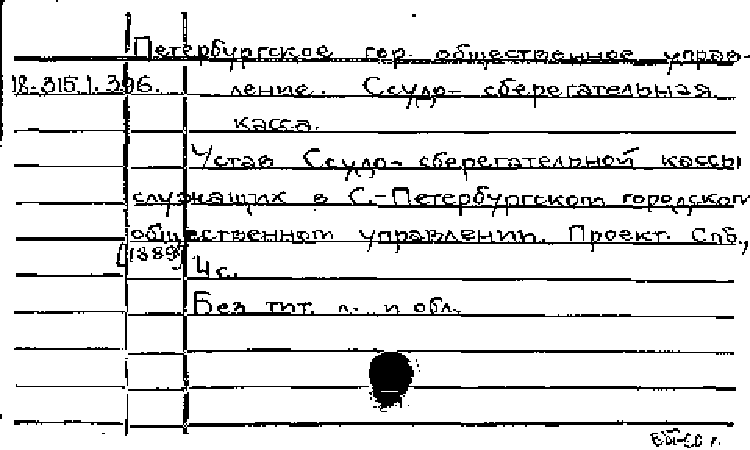 Петербургское гор. общественное управ-
18.315.1.396. ление. Ссудо-сберегательная
касса.
Устав Ссудо-сберегательной кассы
служащих в С.-Петербургском городском
общественном управлении. Проект. Спб.,
[1889] 4 с.
Без тит. л. и обл.